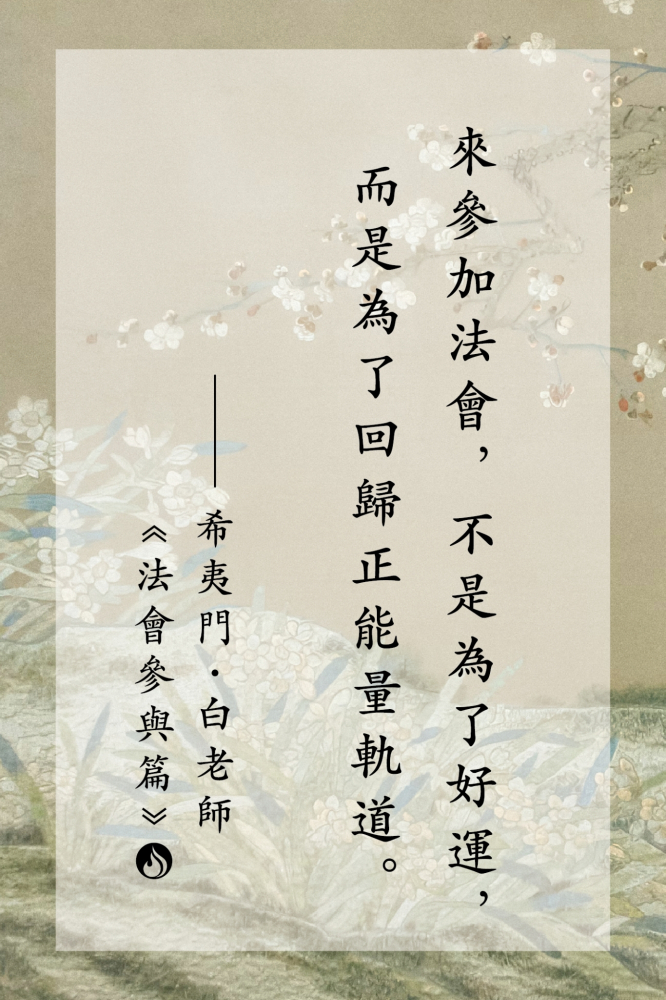 來參加法會，不是為了好運，
而是為了回歸正能量軌道。
——希夷門·白老師
《法會參與篇》